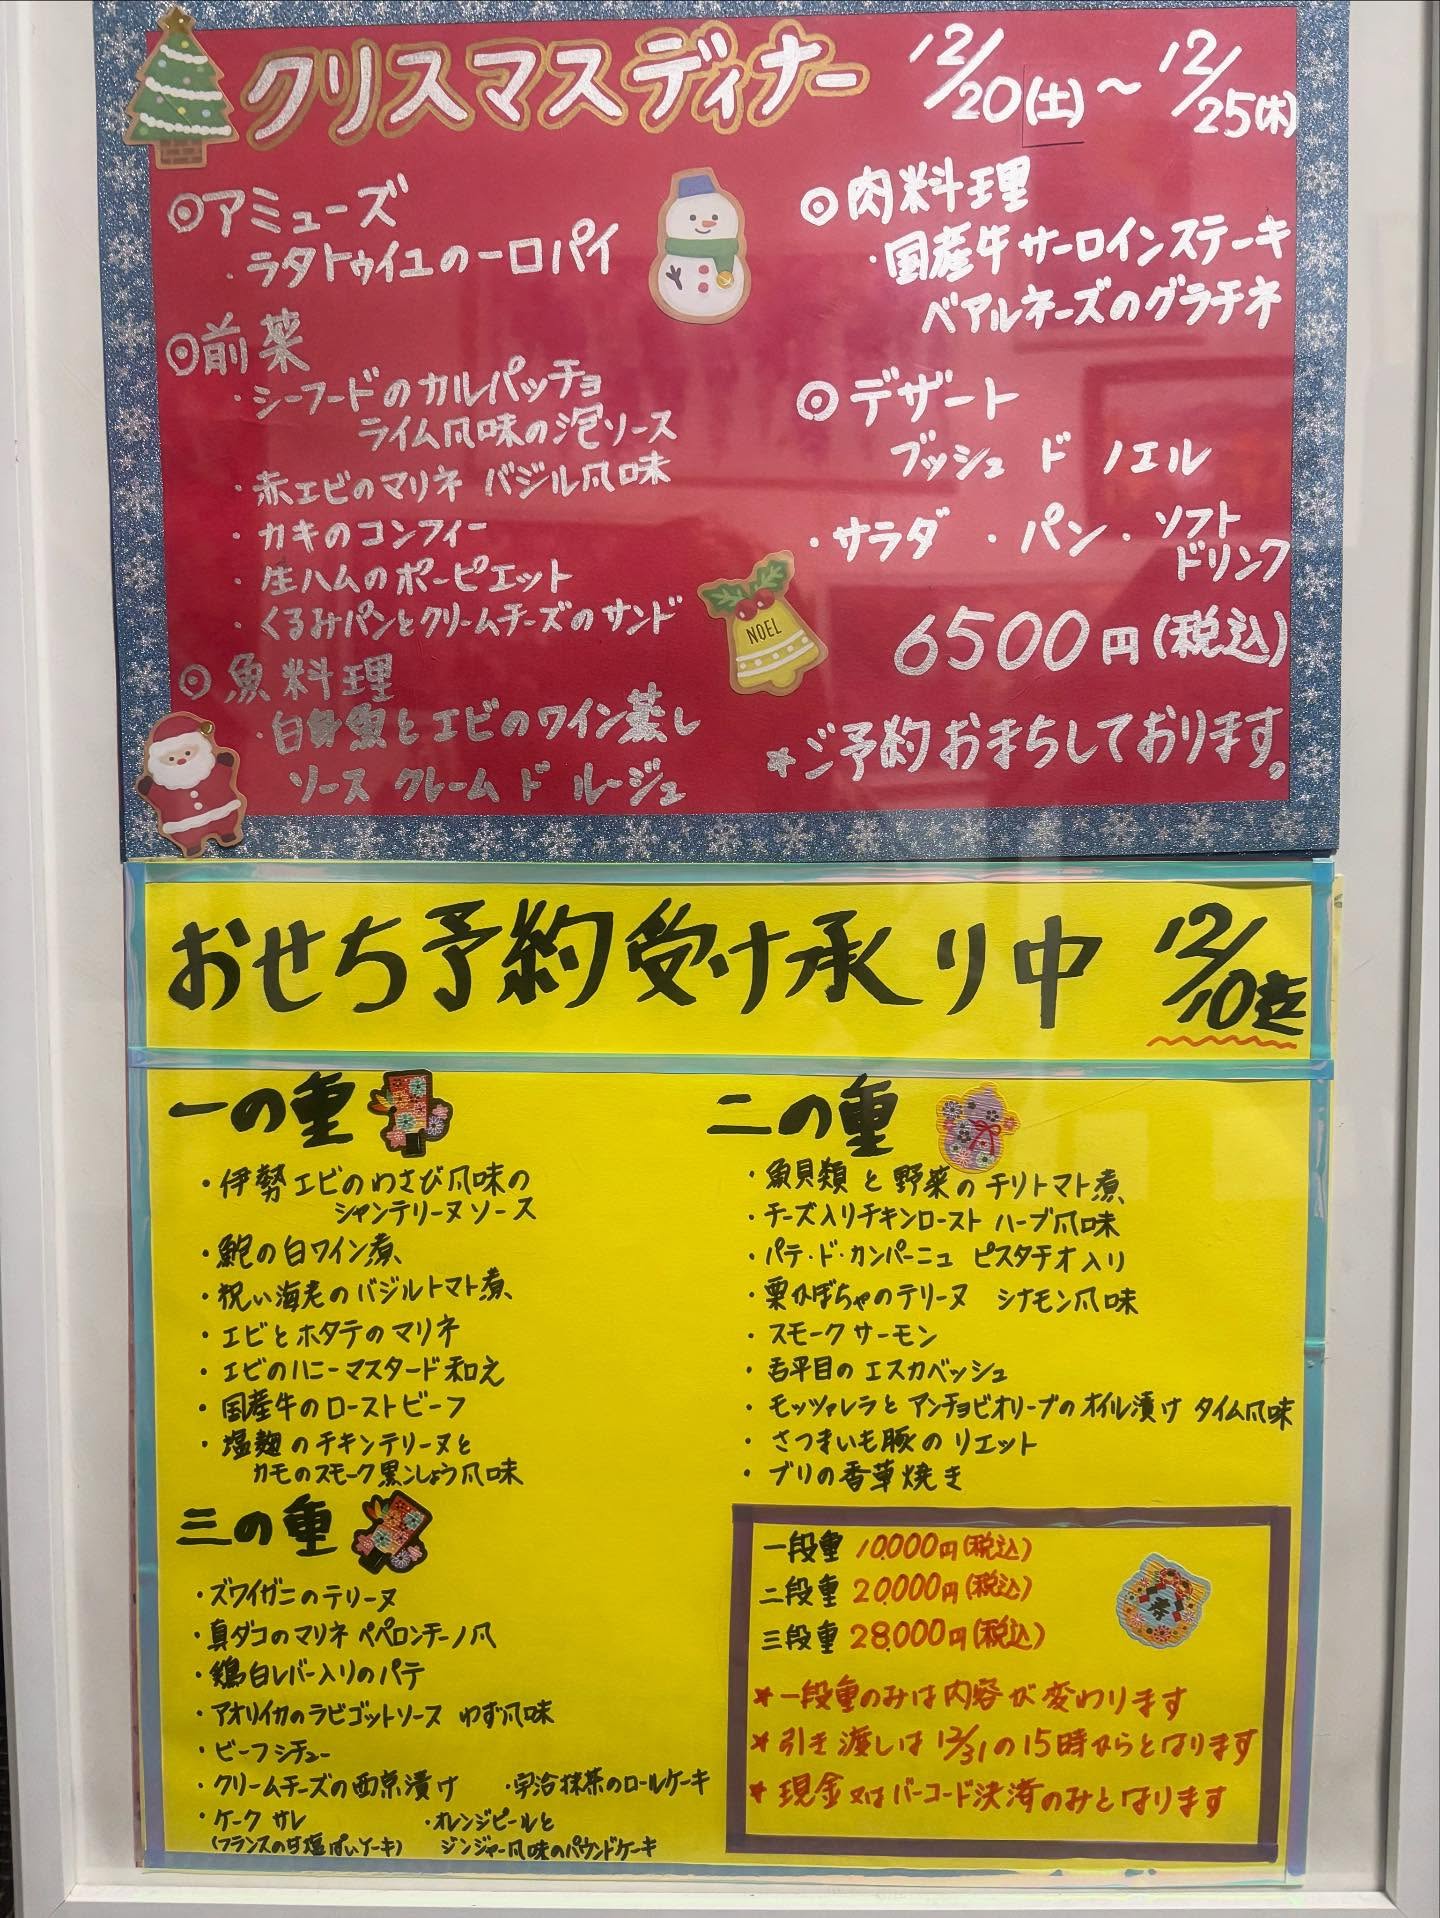 クリスマスディナー 12/20(土)～12/25(木)
◎アミューズ
・ラタトゥイユの一口パイ
◎前菜
・シーフードのカルパッチョ
ライム風味の泡ソース
・赤エビのマリネ バジル風味
・カキのコンフィー
・生ハムのポーピエット
・くるみパンとクリームチーズのサンド
◎魚料理
・白身魚とエビのワイン蒸し
ソース クレーム ド ルージュ
◎肉料理
・国産牛サーロインステーキ
ベアルネーズのグラチネ
◎デザート
ブッシュ ド ノエル
・サラダ ・パン ・ソフト
ドリンク
6500円(税込)
＊ご予約おまちしております。
NOEL
おせち予約受け承り中 12/10迄
一の重
・伊勢エビのわさび風味の
シャンテリーヌソース
・鮑の白ワイン煮
・祝い海老のバジルトマト煮
・エビとホタテのマリネ
・エビのハニーマスタード和え
・国産牛のローストビーフ
・塩麹のチキンテリーヌと
カモのスモーク黒こしょう風味
二の重
・魚貝類と野菜のチリトマト煮
・チーズ入りチキンロースト ハーブ風味
・パテ・ド・カンパーニュ ピスタチオ入り
・栗かぼちゃのテリーヌ シナモン風味
・スモークサーモン
・舌平目のエスカベッシュ
・モッツァレラとアンチョビオリーブのオイル漬け タイム風味
・さつまいも豚のリエット
・ブリの香草焼き
三の重
・ズワイガニのテリーヌ
・真ダコのマリネ ペペロンチーノ風
・鶏白レバー入りのパテ
・アオリイカのラビゴットソース ゆず風味
・ビーフシチュー
・クリームチーズの西京漬け ・宇治抹茶のロールケーキ
・ケーク サレ ・オレンジピールと
(フランスの甘塩ぱいケーキ) ジンジャー風味のパウンドケーキ
一段重 10,000円(税込)
二段重 20,000円(税込)
三段重 28,000円(税込)
寿
＊一段重のみは内容が変わります
＊引き渡しは12/31の15時からとなります
＊現金又はバーコード決済のみとなります